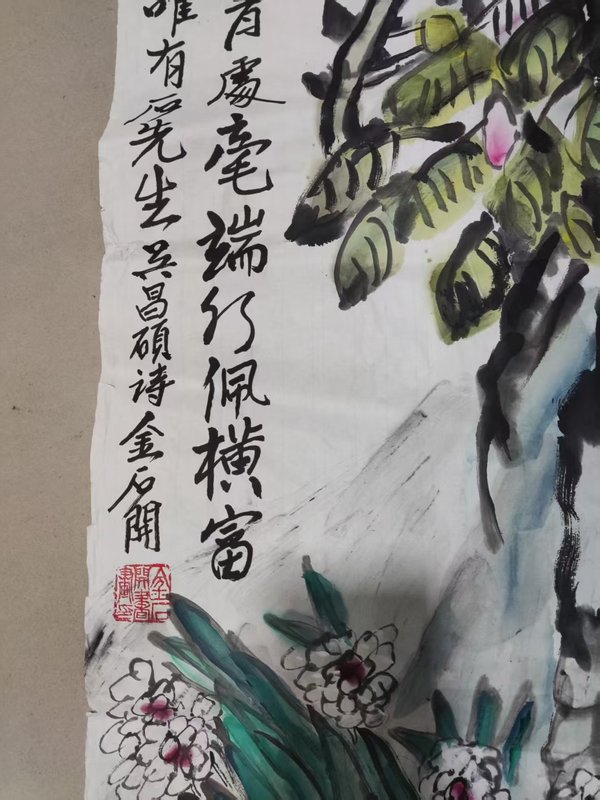 處毫端行佩橫富
唯有石先生 吴昌碩诗 金石開
金石
開書
畫印